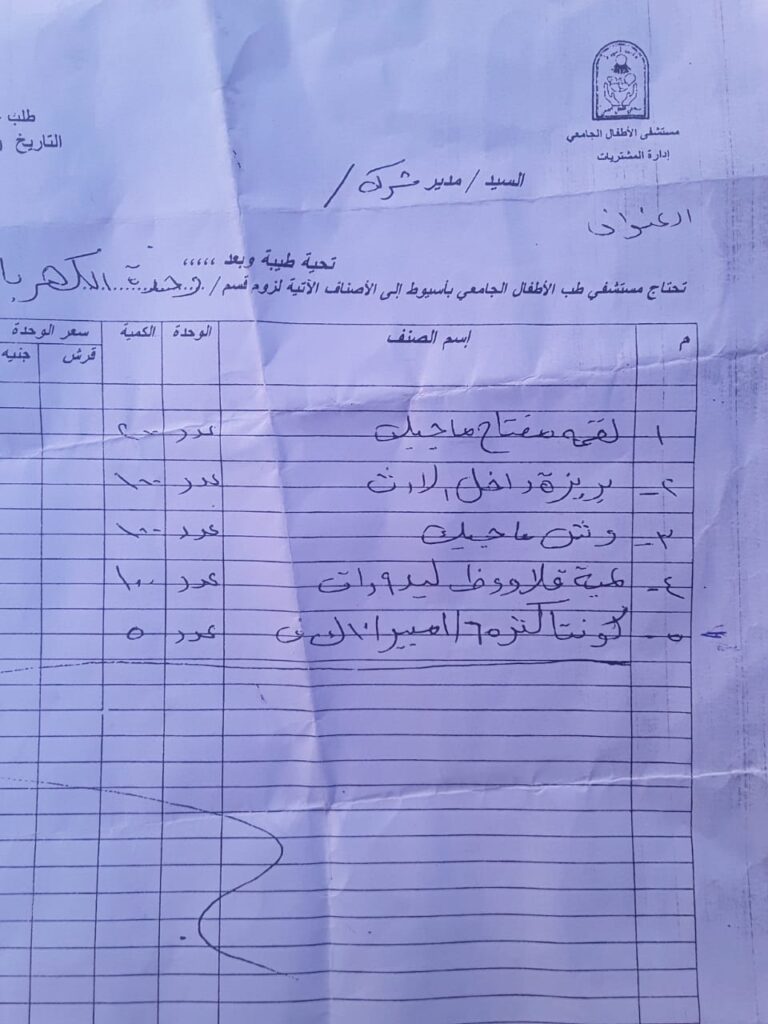 مستشفى الأطفال الجامعي
إدارة المشتريات
طلب
التاريخ
السيد / مدير شركة /
تحية طيبة وبعد ،،،،،
تحتاج مستشفي طب الأطفال الجامعي بأسيوط إلى الأصناف الآتية لزوم قسم / وحدة الكهربا
م إسم الصنف الوحدة الكمية سعر الوحدة
قرش جنيه
١- لقمة مفتاح ماجيك عدد ٢٠٠
٢- بريزة داخل الارت عدد ١٠٠
٣- وش ماجيك عدد ١٠٠
٤- لمبة قلاووظ ليد ٩ وات عدد ١٠٠
٥- كونتاكتر ٦٥ امبير عدد ٥